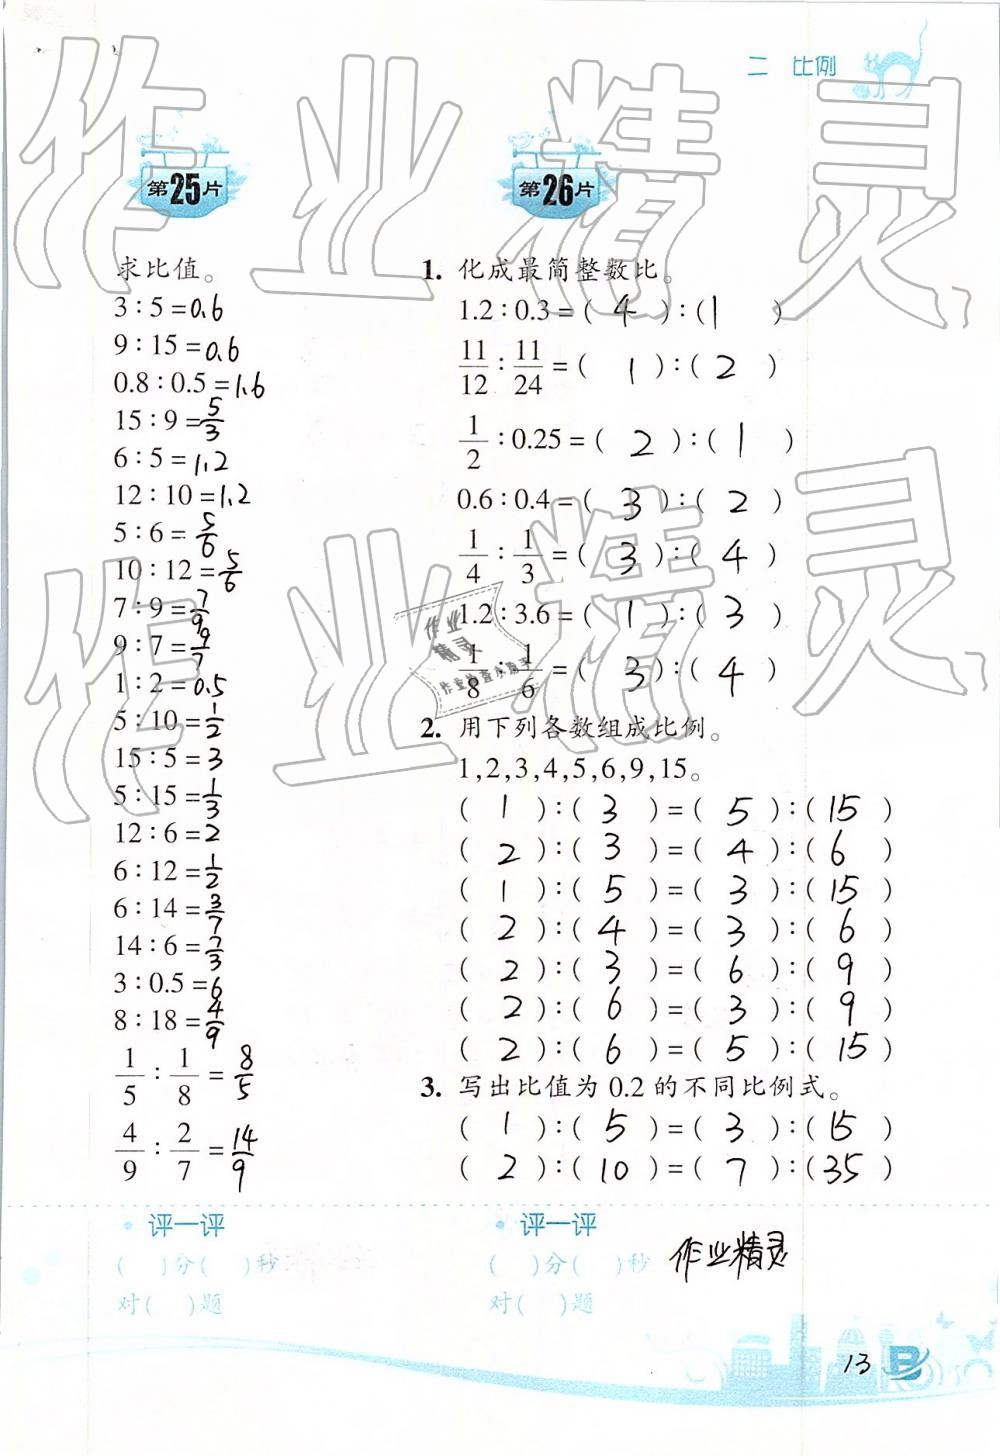 二 比例
第25片
求比值。
3∶5=0.6
9∶15=0.6
0.8∶0.5=1.6
15∶9=5/3
6∶5=1.2
12∶10=1.2
5∶6=5/6
10∶12=5/6
7∶9=7/9
9∶7=9/7
1∶2=0.5
5∶10=1/2
15∶5=3
5∶15=1/3
12∶6=2
6∶12=1/2
6∶14=3/7
14∶6=7/3
3∶0.5=6
8∶18=4/9
1/5∶1/8=8/5
4/9∶2/7=14/9
评一评
( )分( )秒
对( )题
第26片
1. 化成最简整数比。
1.2∶0.3=( 4 )∶( 1 )
11/12∶11/24=( 1 )∶( 2 )
1/2∶0.25=( 2 )∶( 1 )
0.6∶0.4=( 3 )∶( 2 )
1/4∶1/3=( 3 )∶( 4 )
1.2∶3.6=( 1 )∶( 3 )
1/8∶1/6=( 3 )∶( 4 )
2. 用下列各数组成比例。
1,2,3,4,5,6,9,15。
( 1 )∶( 3 )=( 5 )∶( 15 )
( 2 )∶( 3 )=( 4 )∶( 6 )
( 1 )∶( 5 )=( 3 )∶( 15 )
( 2 )∶( 4 )=( 3 )∶( 6 )
( 2 )∶( 3 )=( 6 )∶( 9 )
( 2 )∶( 6 )=( 3 )∶( 9 )
( 2 )∶( 6 )=( 5 )∶( 15 )
3. 写出比值为0.2的不同比例式。
( 1 )∶( 5 )=( 3 )∶( 15 )
( 2 )∶( 10 )=( 7 )∶( 35 )
评一评
( )分( )秒
对( )题
作业精灵
13
B
作业精灵
作业精灵
作业
精灵